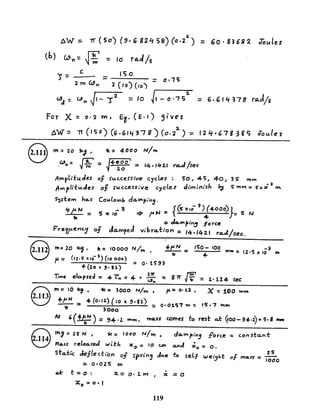 ΔW = π (50) (9.682458) (0.2²) = 60.83682 Joules
(b) ωn = √(k/m) = 10 rad/s
ζ = c / (2 m ωn) = 150 / (2 (10) (10)) = 0.75
ωd = ωn √(1 - ζ²) = 10 √(1 - 0.75²) = 6.614378 rad/s
For X = 0.2 m, Eq. (E.1) gives
ΔW = π (150) (6.614378) (0.2²) = 124.678385 Joules
2.111 m = 20 kg, k = 4000 N/m
ωn = √(k/m) = √(4000/20) = 14.1421 rad/sec
Amplitudes of successive cycles : 50, 45, 40, 35 mm
Amplitudes of successive cycles diminish by 5 mm = 5×10⁻³ m
System has Coulomb damping.
4μN/k = 5×10⁻³ ⇒ μN = {(5×10⁻³)(4000)/4} = 5 N
= damping force
Frequency of damped vibration = 14.1421 rad/sec.
2.112 m = 20 kg, k = 10000 N/m, 4μN/k = (150-100)/4 mm = 12.5×10⁻³ m
μ = (12.5×10⁻³)(10000) / (4(20×9.81)) = 0.1593
Time elapsed = 4 τn = 4 × 2π/ωn = 8π √(m/k) = 1.124 sec
2.113 m = 10 kg, k = 3000 N/m, μ = 0.12, X = 100 mm
4μN/k = 4(0.12)(10×9.81)/3000 = 0.0157 m = 15.7 mm
N 6(4μN/k) = 94.2 mm, mass comes to rest at (100-94.2) = 5.8 mm
2.114 mg = 25 N, k = 1000 N/m, damping force = constant
mass released with x₀ = 10 cm and ẋ₀ = 0.
Static deflection of spring due to self weight of mass = 25/1000
= 0.025 m
at t = 0 : x = 0.1 m, ẋ = 0
x₀ = 0.1
119